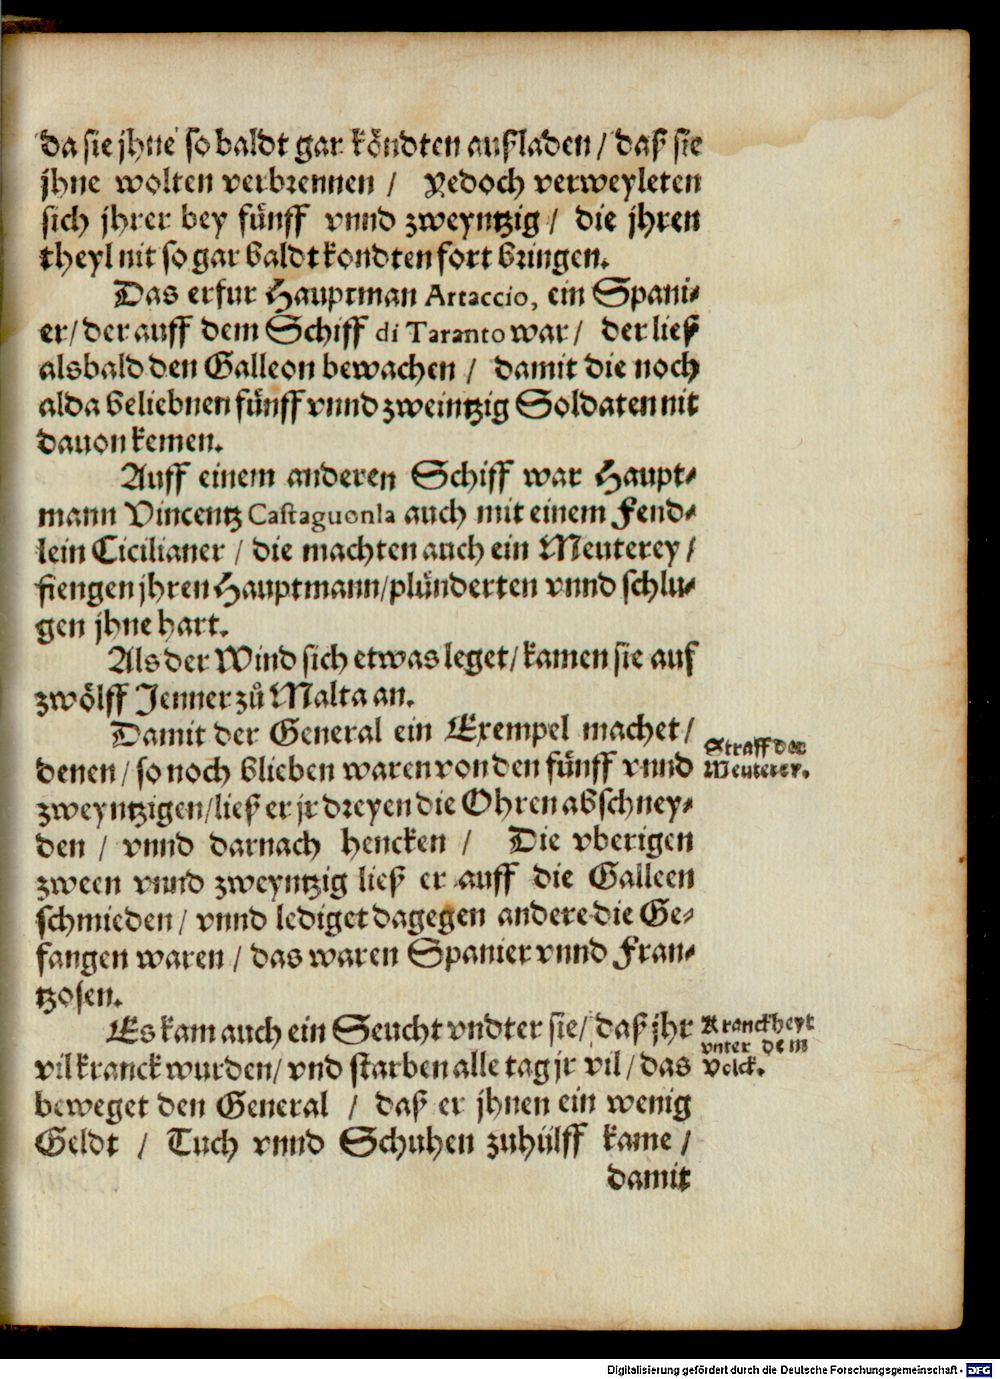 da sie jhne so baldt gar köndten außladen / daß sie
jhne wolten verbrennen / Yedoch verweyleten
sich jhrer bey fünff vnnd zweyntzig / die jhren
theyl nit so gar baldt kondten fort bringen.
Das erfur Hauptman Artaccio, ein Spani⸗
er / der auff dem Schiff di Taranto war / der ließ
alsbald den Galleon bewachen / damit die noch
alda beliebnen fünff vnnd zweintzig Soldaten nit
dauon kemen.
Auff einem anderen Schiff war Haupt⸗
mann Vincentz Castaguonla auch mit einem Fend⸗
lein Cicilianer / die machten auch ein Meuterey /
fiengen jhren Hauptmann / plünderten vnnd schlu⸗
gen jhne hart.
Als der Wind sich etwas leget / kamen sie auf
zwölff Jenner zů Malta an.
Damit der General ein Exempel machet /
denen / so noch blieben waren von den fünff vnnd
zweyntzigen / ließ er jr dreyen die Ohren abschney⸗
den / vnnd darnach hencken / Die vberigen
zween vnnd zweyntzig ließ er auff die Galleen
schmieden / vnnd lediget dagegen andere die Ge⸗
fangen waren / das waren Spanier vnnd Fran⸗
tzosen.
Straff der
Meuterer.
Es kam auch ein Seucht vndter sie / daß jhr
vil kranck wurden / vnd starben alle tag jr vil / das
beweget den General / daß er jhnen ein wenig
Geldt / Tuch vnnd Schuhen zuhülff kame /
Kranckheyt
vnter dem
Volck.
damit
Digitalisierung gefördert durch die Deutsche Forschungsgemeinschaft - DFG